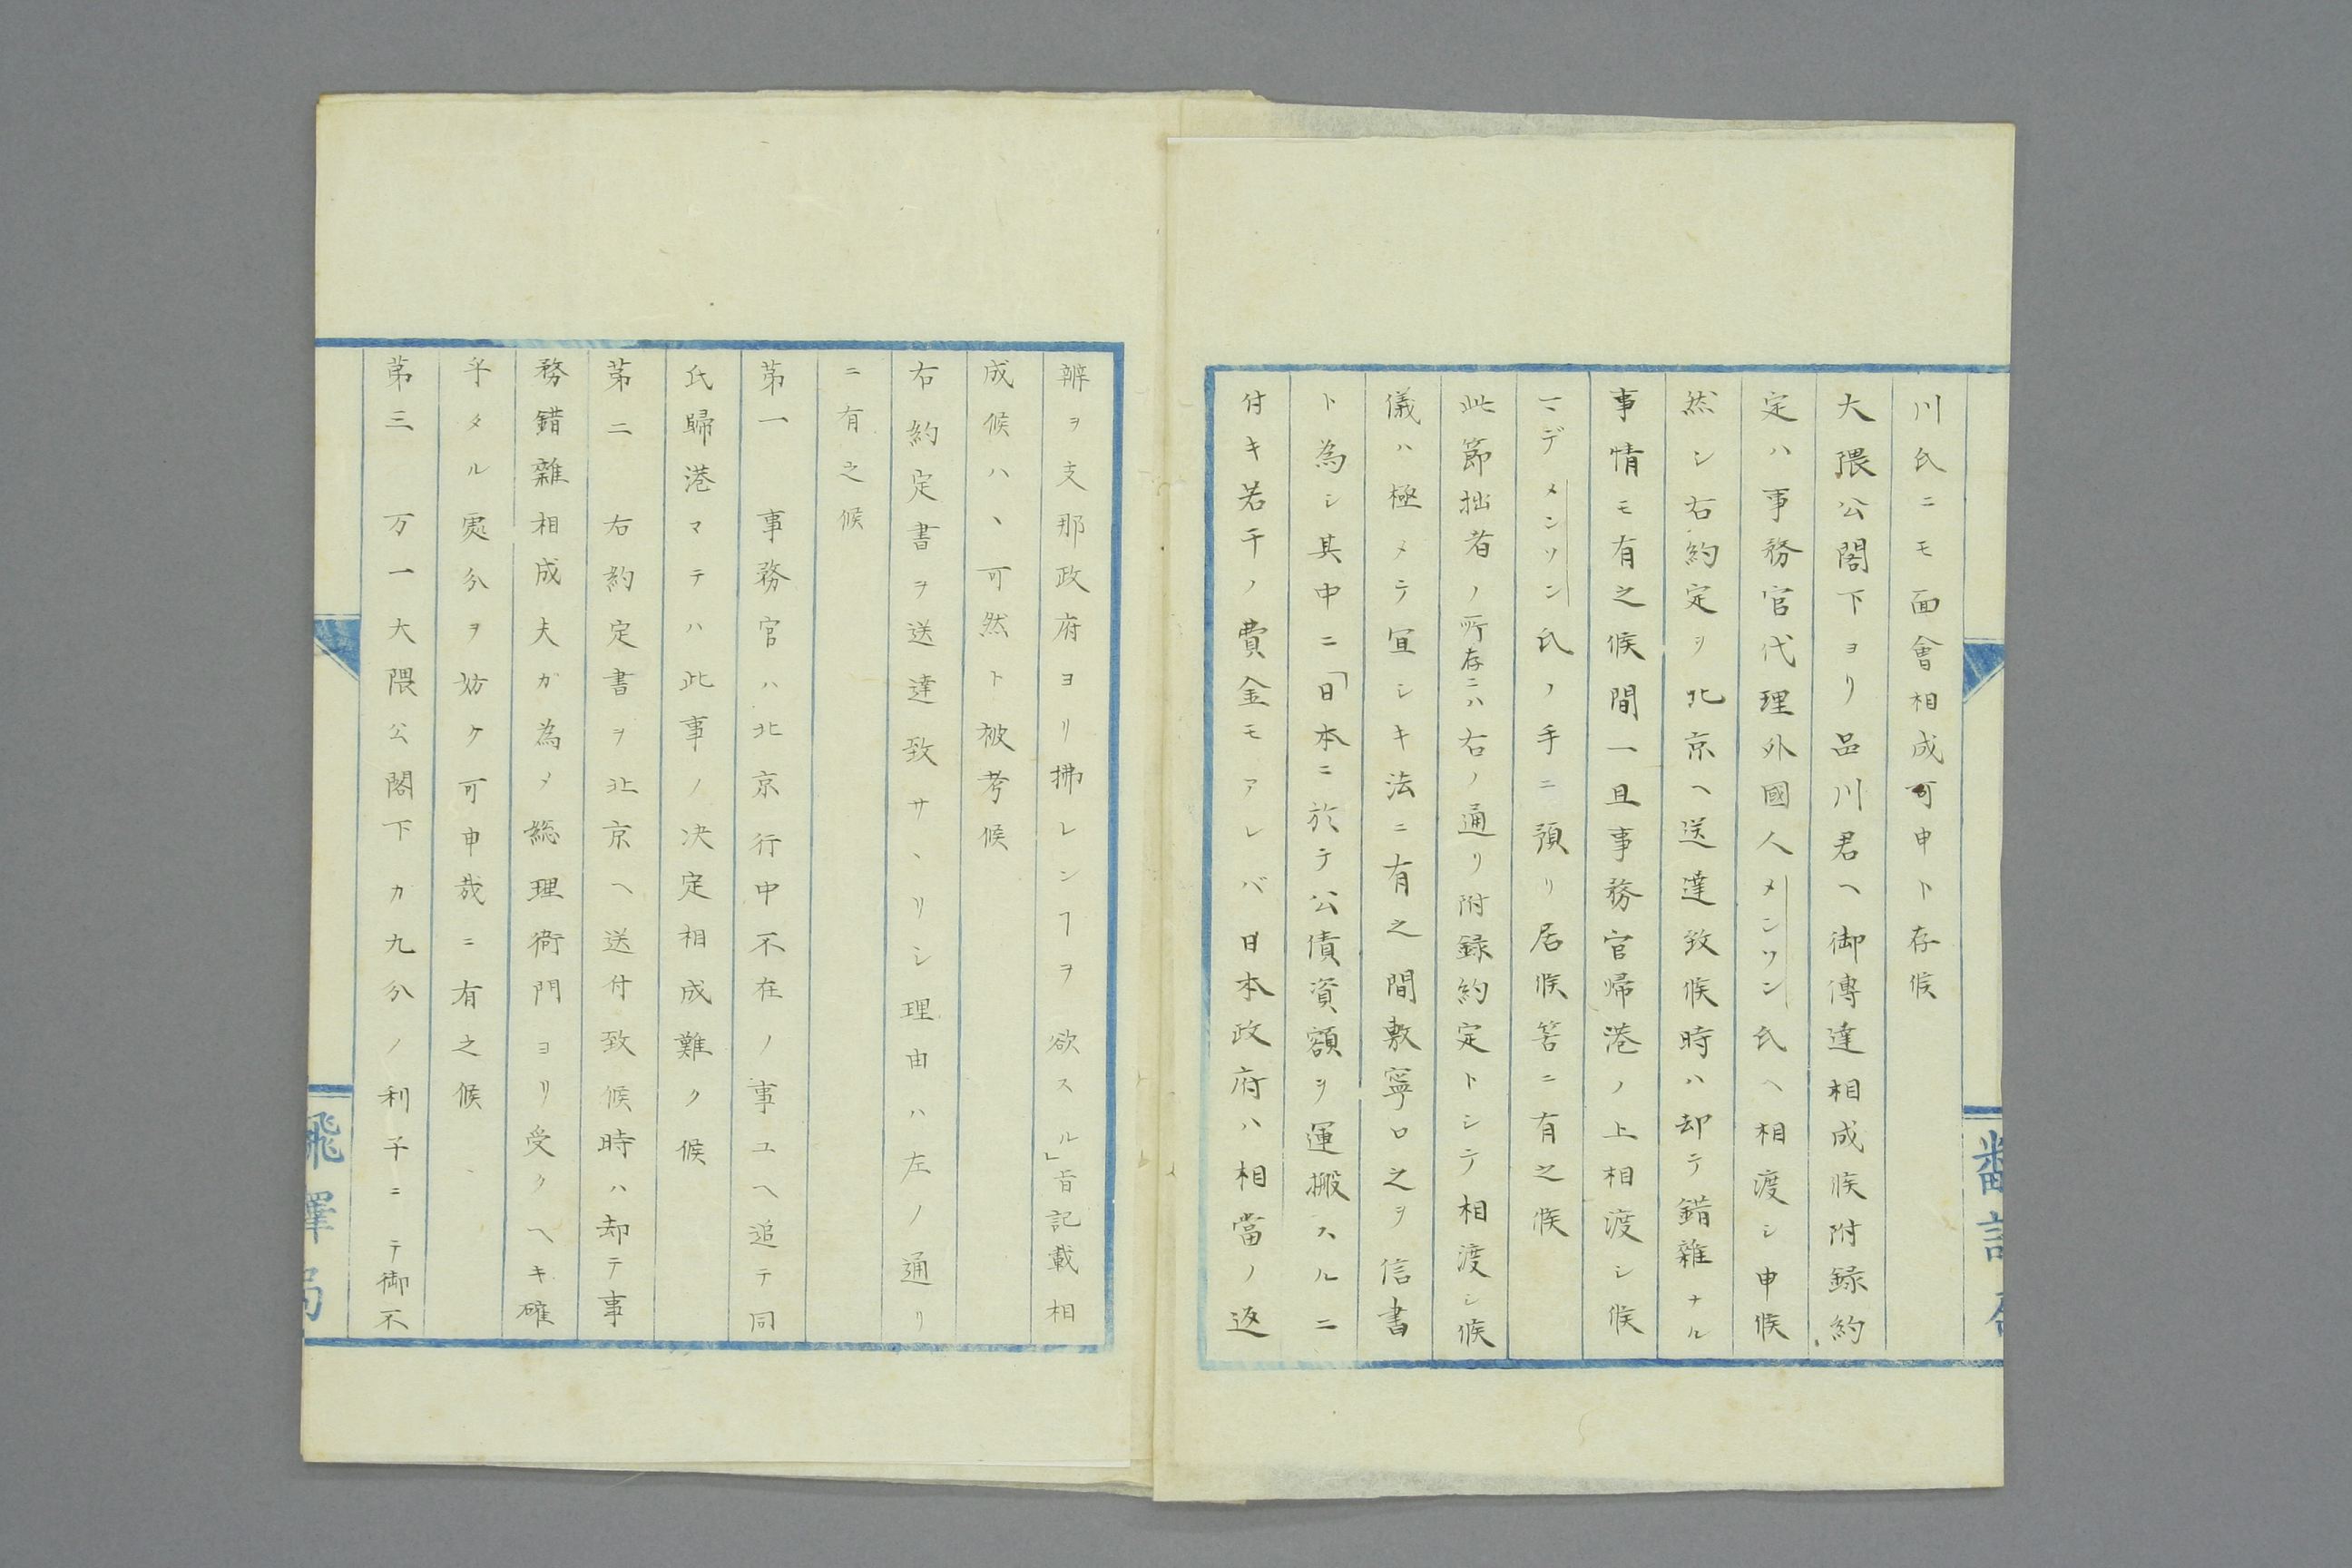 川氏ニモ面會相成可申ト存候
大隈公閣下ヨリ品川君ヘ御傳達相成候附録約
定ハ事務官代理外國人メンソン氏ヘ相渡シ申候
然シ右約定ヲ北京ヘ送達致候時ハ却テ錯雜ナル
事情モ有之候間一且事務官帰港ノ上相渡シ候
マデメンソン氏ノ手ニ預リ居候筈ニ有之候
此節拙者ノ所存ニハ右ノ通リ附録約定トシテ相渡シ候
儀ハ極メテ宜シキ法ニ有之間敷寧ロ之ヲ信書
ト為シ其中ニ「日本ニ於テ公債資額ヲ運搬スルニ
付キ若干ノ費金モアレバ日本政府ハ相當ノ返
辨ヲ支那政府ヨリ拂レンヿヲ欲スル」旨記載相
成候ハヽ可然ト被考候
右約定書ヲ送達致サヽリシ理由ハ左ノ通リ
ニ有之候
第一 事務官ハ北京行中不在ノ事ユヘ追テ同
氏歸港マテハ此事ノ决定相成難ク候
第二 右約定書ヲ北京ヘ送付致候時ハ却テ事
務錯雜相成夫カ為メ総理衙門ヨリ受クヘキ確
乎タル處分ヲ妨ケ可申哉ニ有之候
第三 万一大隈公閣下カ九分ノ利子ニテ御不
飜譯局